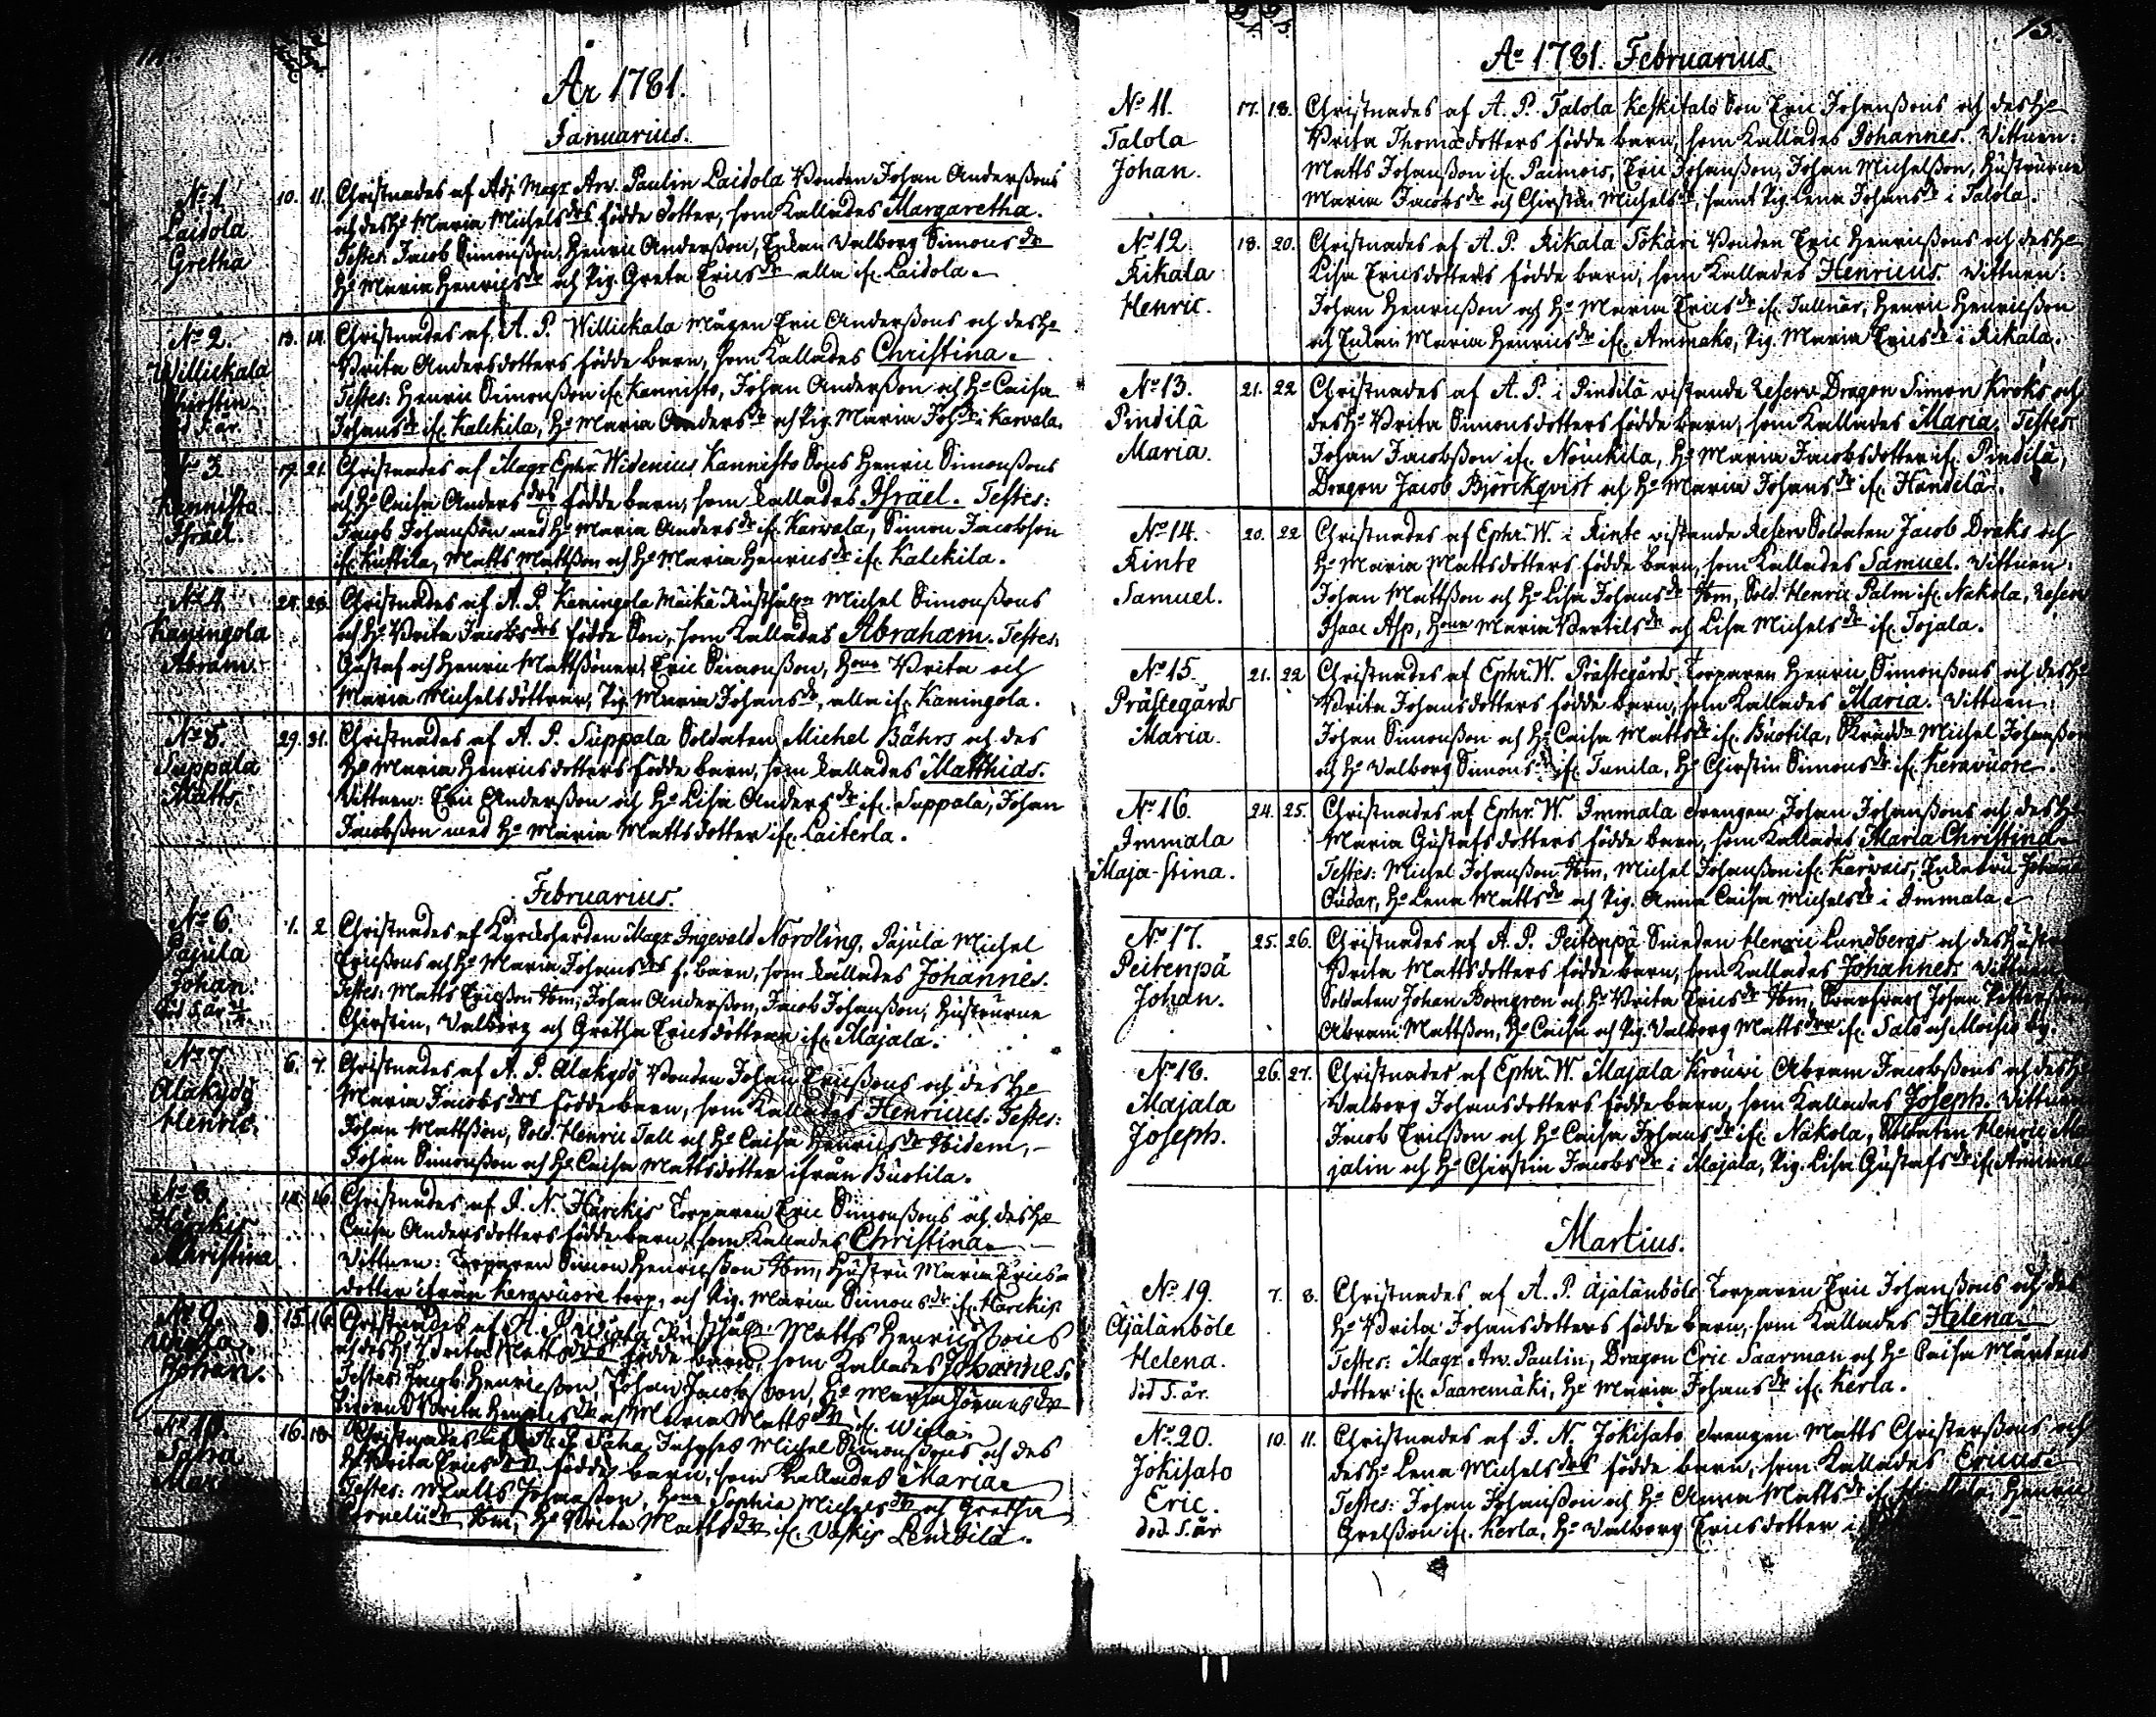 År 1781.
Januarius.
No 1. 10. 11. Christnades af Adj. Magr Arv. Paulin Laidola Bonden Johan Anderssons
Laidola och des Ho Maria Michels drs födde dotter, som kallades Margaretha.
Gretha Testes: Jacob Simonsson, Henric Andersson, Enkan Valborg Simons dr
Ho Maria Henrics dr och Pig. Greta Erics dr alla ifr. Laidola.
No 2. 13. 14. Christnades af A. P. Willickala Mågen Eric Anderssons och des Ho
Willickala Brita Andersdotters födde barn, som kallades Christina.
Christin Testes: Henric Simonsson ifr. Kannisto, Johan Andersson och Ho Caisa
d 5. år. Johans dr ifr. Kalckila, Ho Maria Anders dr och Pig. Maria Joh dr i Karvala.
No 3. 19. 21. Christnades af Magr Ephr. Widenius Kannisto Sons Henric Simonssons
Kannisto och Ho Caisa Anders drs födde barn, som kallades Israël. Testes:
Israël. Jacob Johansson med Ho Maria Anders dr ifr. Karwala, Simon Jacobsson
ifr. Kuttila, Matts Mattsson och Ho Maria Henrics dr ifr. Kalckila.
No 4. 27. 28. Christnades af A. P. Kaningola Mäikä Rusthåln Michel Simonssons
Kaningola och Ho Brita Jacobs drs födde Son, som kallades Abraham. Testes:
Abram. Gustaf och Henric Mattssöner, Eric Simonsson, Hona Brita och
Maria Michelsdöttrar, Pig. Maria Johans dr, alla ifr. Kaningola.
No 5. 29. 31. Christnades af A. P. Suppala Soldaten Michel Bährs och des
Suppala Ho Maria Henricsdotters födde barn, som kallades Matthias.
Matts. Vittnen: Eric Andersson och Ho Lisa Anders dr ifr. Suppala, Johan
Jacobsson med Ho Maria Mattsdotter ifr. Laiterla.
Februarius.
No 6. 1. 2. Christnades af Kyrckoherden Magr Ingevald Nordling, Pajula Michel
Pajula Ericssons och Ho Maria Johans drs f. barn, som kallades Johannes.
Johan. Testes: Matts Ericsson Ibm, Johan Andersson, Jacob Johansson, Hustrurne
död 5. år Chirstin, Valborg och Gretha Ericsdöttrar ifr. Majala.
No 7 6. 7. Christnades af A. P. Alakydö Bonden Johan Ericssons och des Ho
Alakydö Maria Jacobs drs födde barn, som kallades Henricus. Testes:
Henric. Johan Mattsson, Sold. Henric Tall och Ho Caisa Henrics dr Ibidem,
Johan Simonsson och Ho Caisa Mattsdotter ifrån Buotila.
No 8. 14. 16. Christnades af I. N. Härckis Torparen Eric Simonssons och des Ho
Härckis Caisa Andersdotters födde barn, som kallades Christina.
Christina Vittnen: Torparen Simon Henricsson Ibm, Hustru Maria Erics=
dotter ifrån Keravuore torp, och Pig. Maria Simons dr ifr. Härckis.
No 9. 15. 16. Christnades af A. P. Wiala Rusthåln Matts Henricssons
Wiala och des Ho Brita Matts drs födde barn, som kallades Johannes.
Johan. Testes: Jacob Henricsson, Johan Jacobsson, Ho Maria
Brita Henrics dr och Maria Matts dr ifr. Wiala.
No 10. 16. 18. Christnades af A. P. Saha Inhyses Michel Simonssons och des
Saha Ho Brita Erics drs födde barn, som kallades Maria.
Maria Testes: Matts Johansson, Hona Sophia Michels dr och Gretha
Cornelii dr Ibm, Ho Brita Matts dr ifr. Vaskis Lembilä.
15.
Ao 1781. Februarius.
No 11. 17. 18. Christnades af A. P. Talola Keskitalo Son Eric Johanssons och des Ho
Talola Brita Thomædotters födde barn, som kallades Johannes. Vittnen:
Johan. Matts Johansson ifr. Paimois, Eric Johansson, Johan Michelsson, Hustrurne
Maria Jacobs dr och Chirstin Michels dr, samt Pig. Lena Johans dr i Talola.
No 12. 18. 20. Christnades af A. P. Rikala Sokari Bonden Eric Henricssons och des Ho
Rikala Lisa Ericsdotters födde barn, som kallades Henricus. Vittnen:
Henric. Johan Henricsson och Ho Maria Erics dr ifr. Tallnär, Henric Henricsson
och Enkan Maria Henrics dr ifr. Ammako, Pig. Maria Erics dr i Rikala.
No 13. 21. 22 Christnades af A. P. i Pindilä vistande Reserv Dragon Simon Kroks och
Pindilä des Ho Brita Simonsdotters födde barn, som kallades Maria. Testes:
Maria. Johan Jacobsson ifr. Nöuckila, Ho Maria Jacobsdotter ifr. Pindilä,
Dragon Jacob Björckqvist och Ho Maria Johans dr ifr. Händilä.
No 14. 20. 22 Christnades af Ephr. W. i Rinte vistande Reserv Soldaten Jacob Draks och
Rinte Ho Maria Mattsdotters födde barn, som kallades Samuel. Vittnen:
Samuel. Johan Mattsson och Ho Lisa Johans dr Ibm, Sold. Henric Palm ifr. Nakola, Reserv
Isaac Asp, Hona Maria Bertils dr och Lisa Michels dr ifr. Tojala.
No 15. 21. 22 Christnades af Ephr. W. Prästegårds Torparen Henric Simonssons och des Ho
Prästegårds Brita Johansdotters födde barn, som kallades Maria. Vittnen:
Maria. Johan Simonsson och Ho Caisa Matts dr ifr. Buotila, Skräddn Michel Johansson
och Ho Valborg Simons dr ifr. Tunila, Ho Chirstin Simons dr ifr. Keravuore.
No 16. 24. 25. Christnades af Ephr. W. Immala drengen Johan Johanssons och des Ho
Immala Maria Gustafsdotters födde barn, som kallades Maria Christina.
Maja-Stina. Testes: Michel Johansson Ibm, Michel Johansson ifr. Karvais,
Ho Lena Matts dr och Pig. Anna Caisa Michels dr i Immala.
No 17. 25. 26. Christnades af A. P. Peitenpä Smeden Henric Lundbergs och des Hustru
Peitenpä Brita Mattsdotters födde barn, som kallades Johannes. Vittnen
Johan. Soldaten Johan Bomgren och Ho Brita Erics dr Ibm, Johan Pettersson
Abram Mattsson, Ho Caisa och Pig. Valborg Matts drar ifr. Salo och Moisio by.
No 18. 26. 27. Christnades af Ephr. W. Majala Krouvi Abram Jacobssons och des Ho
Majala Valborg Johansdotters födde barn, som kallades Joseph. Vittnen
Joseph. Jacob Ericsson och Ho Caisa Johans dr ifr. Nakola, Soldaten Henric Ma
jalin och Ho Chirstin Jacobs dr i Majala, Pig. Lisa Gustafs dr ifr.
Martius.
No 19. 7. 8. Christnades af A. P. Äjälänböle Torparen Eric Johanssons och des
Äjälänböle Ho Brita Johansdotters födde barn, som kallades Helena.
Helena. Testes: Magr Arv. Paulin, Dragon Eric Saarman och Ho Caisa Mårtens
död 5. år. dotter ifr. Saaremäki, Ho Maria Johans dr ifr. Kerla.
No 20. 10. 11. Christnades af I. N. Jokisato drengen Matts Christerssons och
Jokisato des Ho Lena Michels drs födde barn, som kallades Ericus.
Eric. Testes: Johan Johansson och Ho Anna Matts dr ifr. Henric
död 5. år Grelsson ifr. Kerla, Ho Valborg Ericsdotter